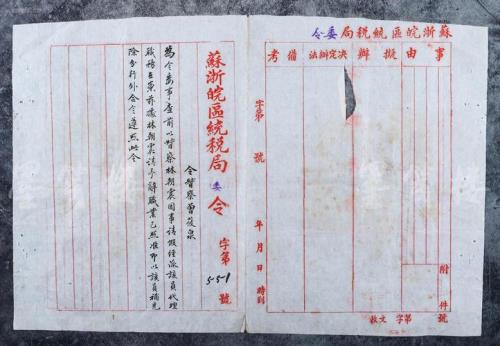 蘇浙皖區統税局委令
事由
擬辦
決定辦法
備考
附件號
收文字第號
字第 號 年 月 日 時到
蘇浙皖區統税局委令 字第551號
令警察曾 泉
為令委事查前以警察林朝震因事請假經派該員代理
職務在案茲據林朝震請予辭職業已照准即以該員補充
除分行外合令遵照此令